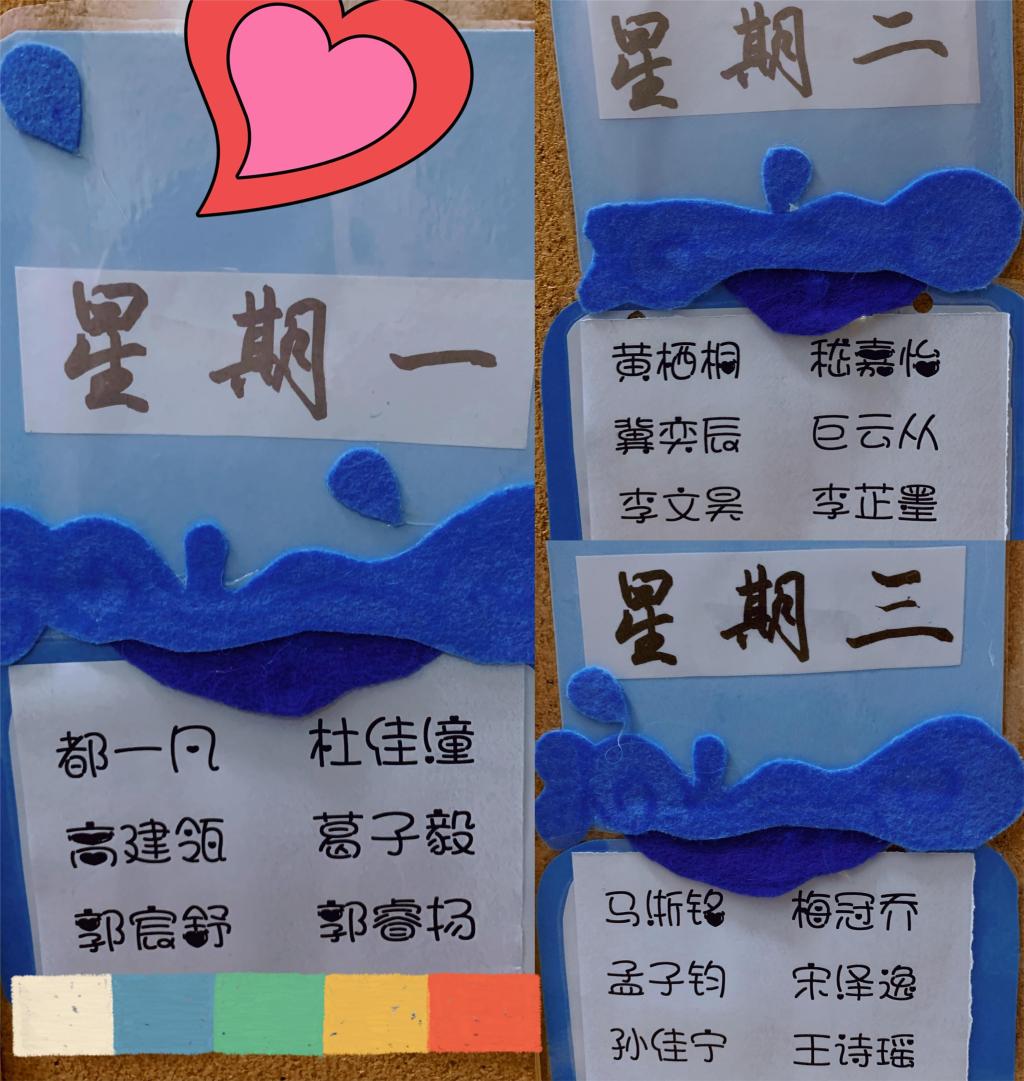 星期一
都一凡 杜佳潼
高建瓴 葛子毅
郭宸舒 郭睿扬
星期二
黄栖桐 嵇嘉怡
冀奕辰 巨云从
李文昊 李芷墨
星期三
马浙铭 梅冠乔
孟子钧 宋泽逸
孙佳宁 王诗瑶